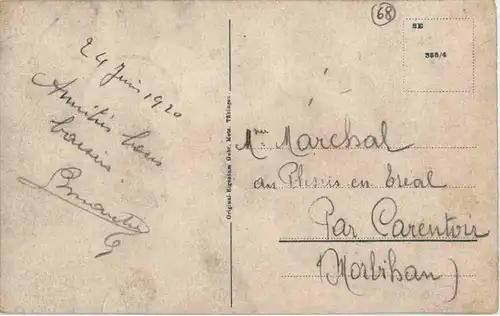 68
SE
355/4
24 Juin 1920
Amitiés bons
baisers
Original-Eigentum Gebr. Metz, Tübingen.
Mme Marchal
au Plessis en Eréal
Par Carentoir
(Morbihan)